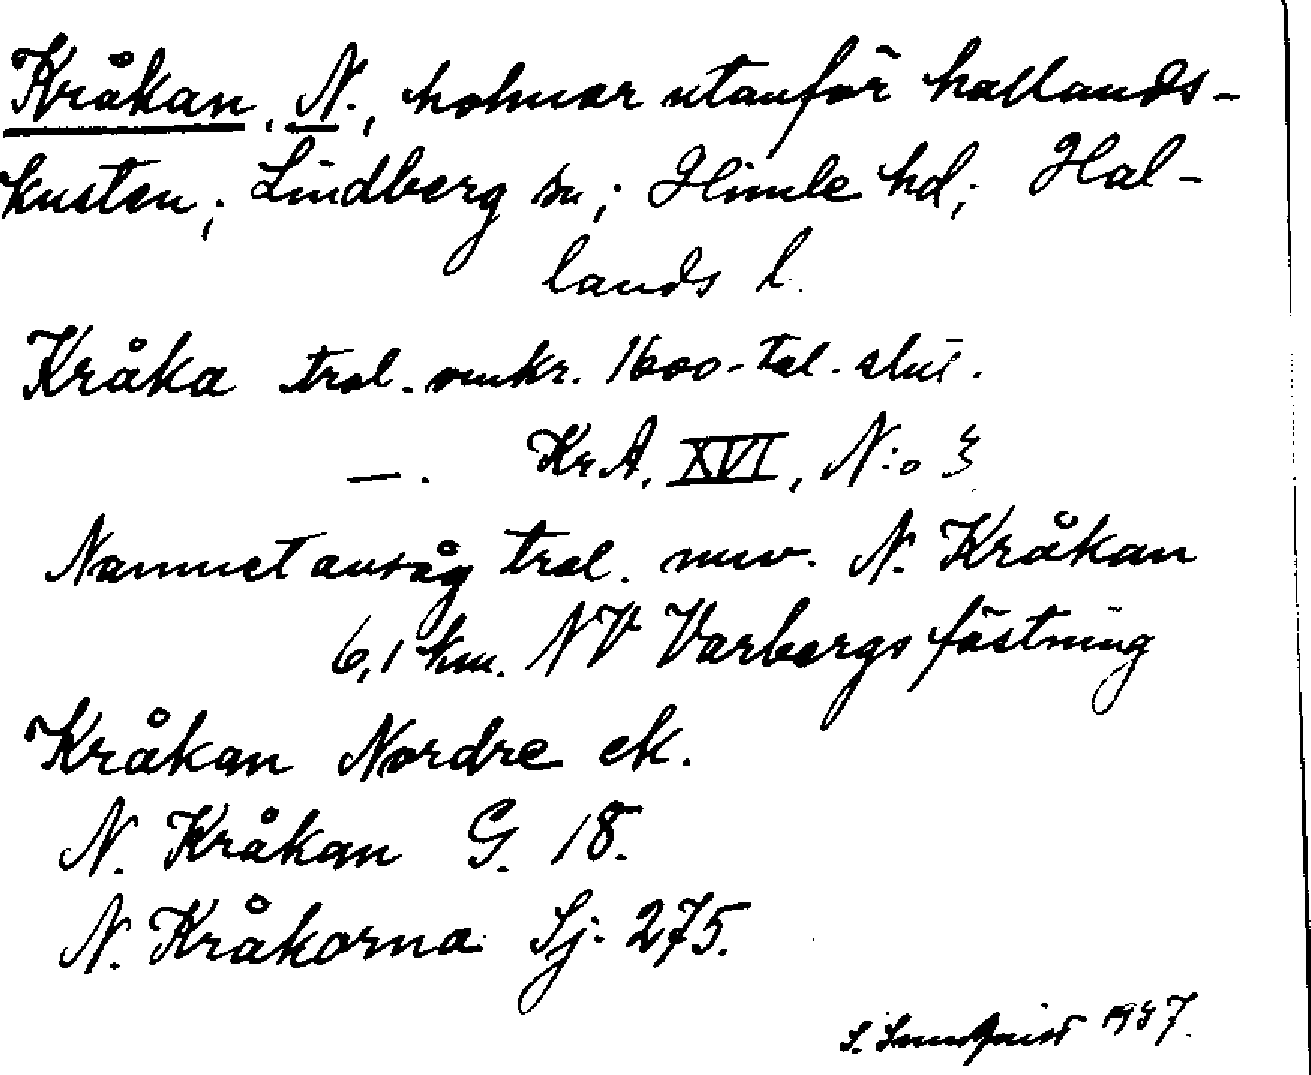 Kråkan, N., holmar utanför hallands-
kusten; Lindberg sn; Himle hd; Hal-
lands l.
Kråka trol. omkr. 1600-tal. slut.
—. Kr.A. XVI, N:o 3
Namnet avsåg trol. nuv. N. Kråkan
6,1 km. NV Varbergs fästning
Kråkan Nordre ek.
N. Kråkan G. 18.
N. Kråkorna Sj. 275.
S. 1937.